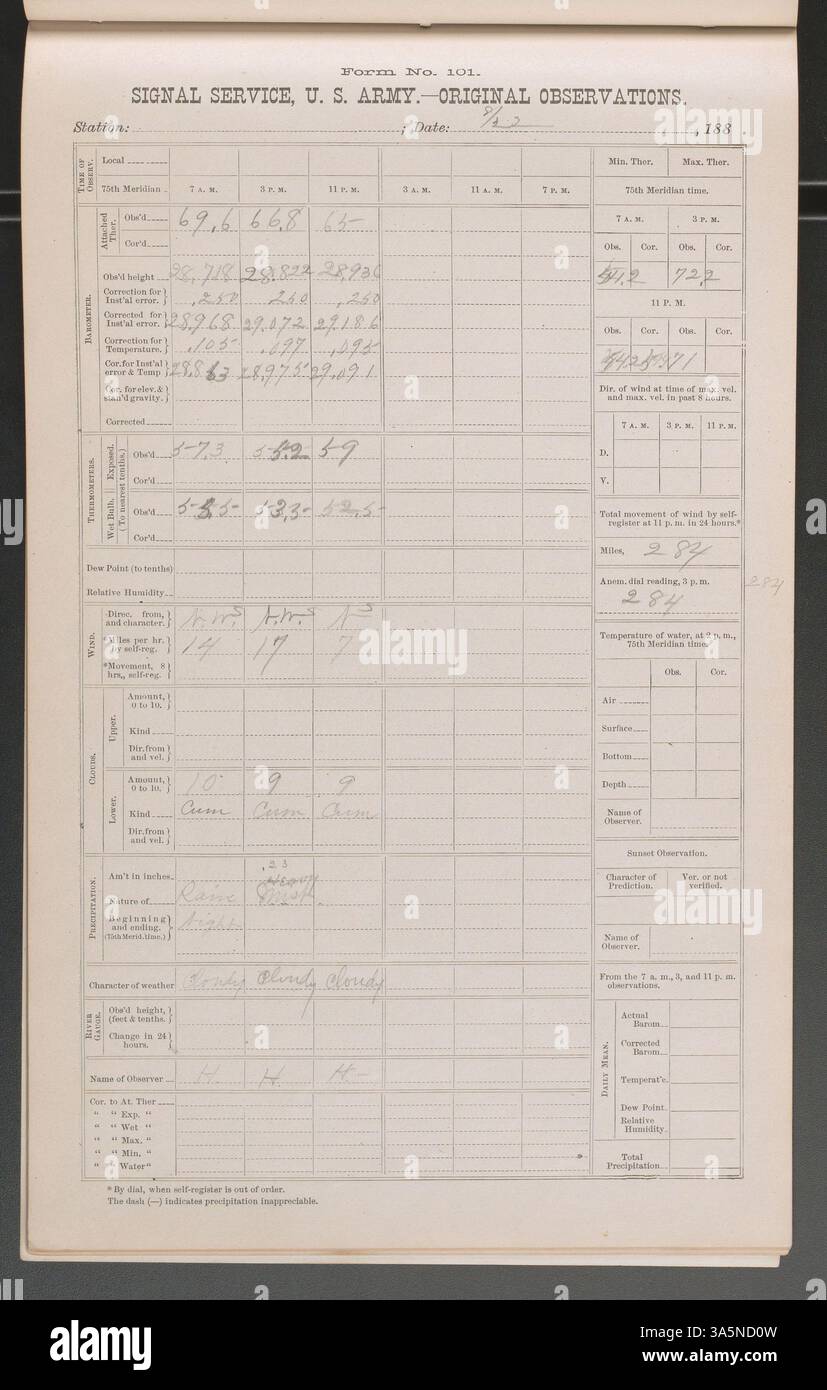 Form No. 101.
SIGNAL SERVICE, U. S. ARMY.—ORIGINAL OBSERVATIONS.
Station: ; Date: , 188
TIME OF OBSERV.
Local
75th Meridian 7 A. M. 3 P. M. 11 P. M. 3 A. M. 11 A. M. 7 P. M.
BAROMETER.
Attached Ther.
Obs'd 69.6 66.8 65
Cor'd
Obs'd height 28.718 28.822 28.936
Correction for Inst'al error. .250 250 .250
Corrected for Inst'al error. 28.968 29.072 29.186
Correction for Temperature. .105 .097 .095
Cor. for Inst'al error & Temp 28.863 28.975 29.091
Cor. for elev. & stan'd gravity.
Corrected
THERMOMETERS.
(To nearest tenths.)
Exposed.
Obs'd 57.3 55.2 59
Cor'd
Wet Bulb.
Obs'd 53.5 52.5
Cor'd
Dew Point (to tenths)
Relative Humidity
WIND.
Direc. from, and character. N.W. N.W. N
*Miles per hr. by self-reg. 14 17 7
*Movement, 8 hrs., self-reg.
CLOUDS.
Upper.
Amount, 0 to 10.
Kind
Dir. from and vel.
Lower.
Amount, 0 to 10. 10 9 9
Kind Cum Cum Cum
Dir. from and vel.
PRECIPITATION.
Am't in inches .23
Heavy
Nature of Rain Mist
Beginning and ending. (75th Merid. time.) Night
Character of weather Cloudy Cloudy Cloudy
RIVER GAUGE.
Obs'd height, (feet & tenths.
Change in 24 hours.
Name of Observer H. H. H
Cor. to At. Ther
" " Exp. "
" " Wet "
" " Max. "
" " Min. "
" " Water "
* By dial, when self-register is out of order.
The dash (—) indicates precipitation inappreciable.
Min. Ther. Max. Ther.
75th Meridian time.
7 A. M. 3 P. M.
Obs. Cor. Obs. Cor.
72.2
11 P. M.
Obs. Cor. Obs. Cor.
71
Dir. of wind at time of max. vel. and max. vel. in past 8 hours.
7 A. M. 3 P. M. 11 P. M.
D.
V.
Total movement of wind by self-register at 11 p. m. in 24 hours.*
Miles, 284
Anem. dial reading, 3 p. m. 284
284
Temperature of water, at 2 p. m., 75th Meridian time.
Obs. Cor.
Air
Surface
Bottom
Depth
Name of Observer.
Sunset Observation.
Character of Prediction. Ver. or not verified.
Name of Observer.
From the 7 a. m., 3, and 11 p. m. observations.
DAILY MEAN.
Actual Barom
Corrected Barom
Temperat'e
Dew Point
Relative Humidity
Total Precipitation
alamy
a
alamy
Image ID: 3A5ND0W
www.alamy.com